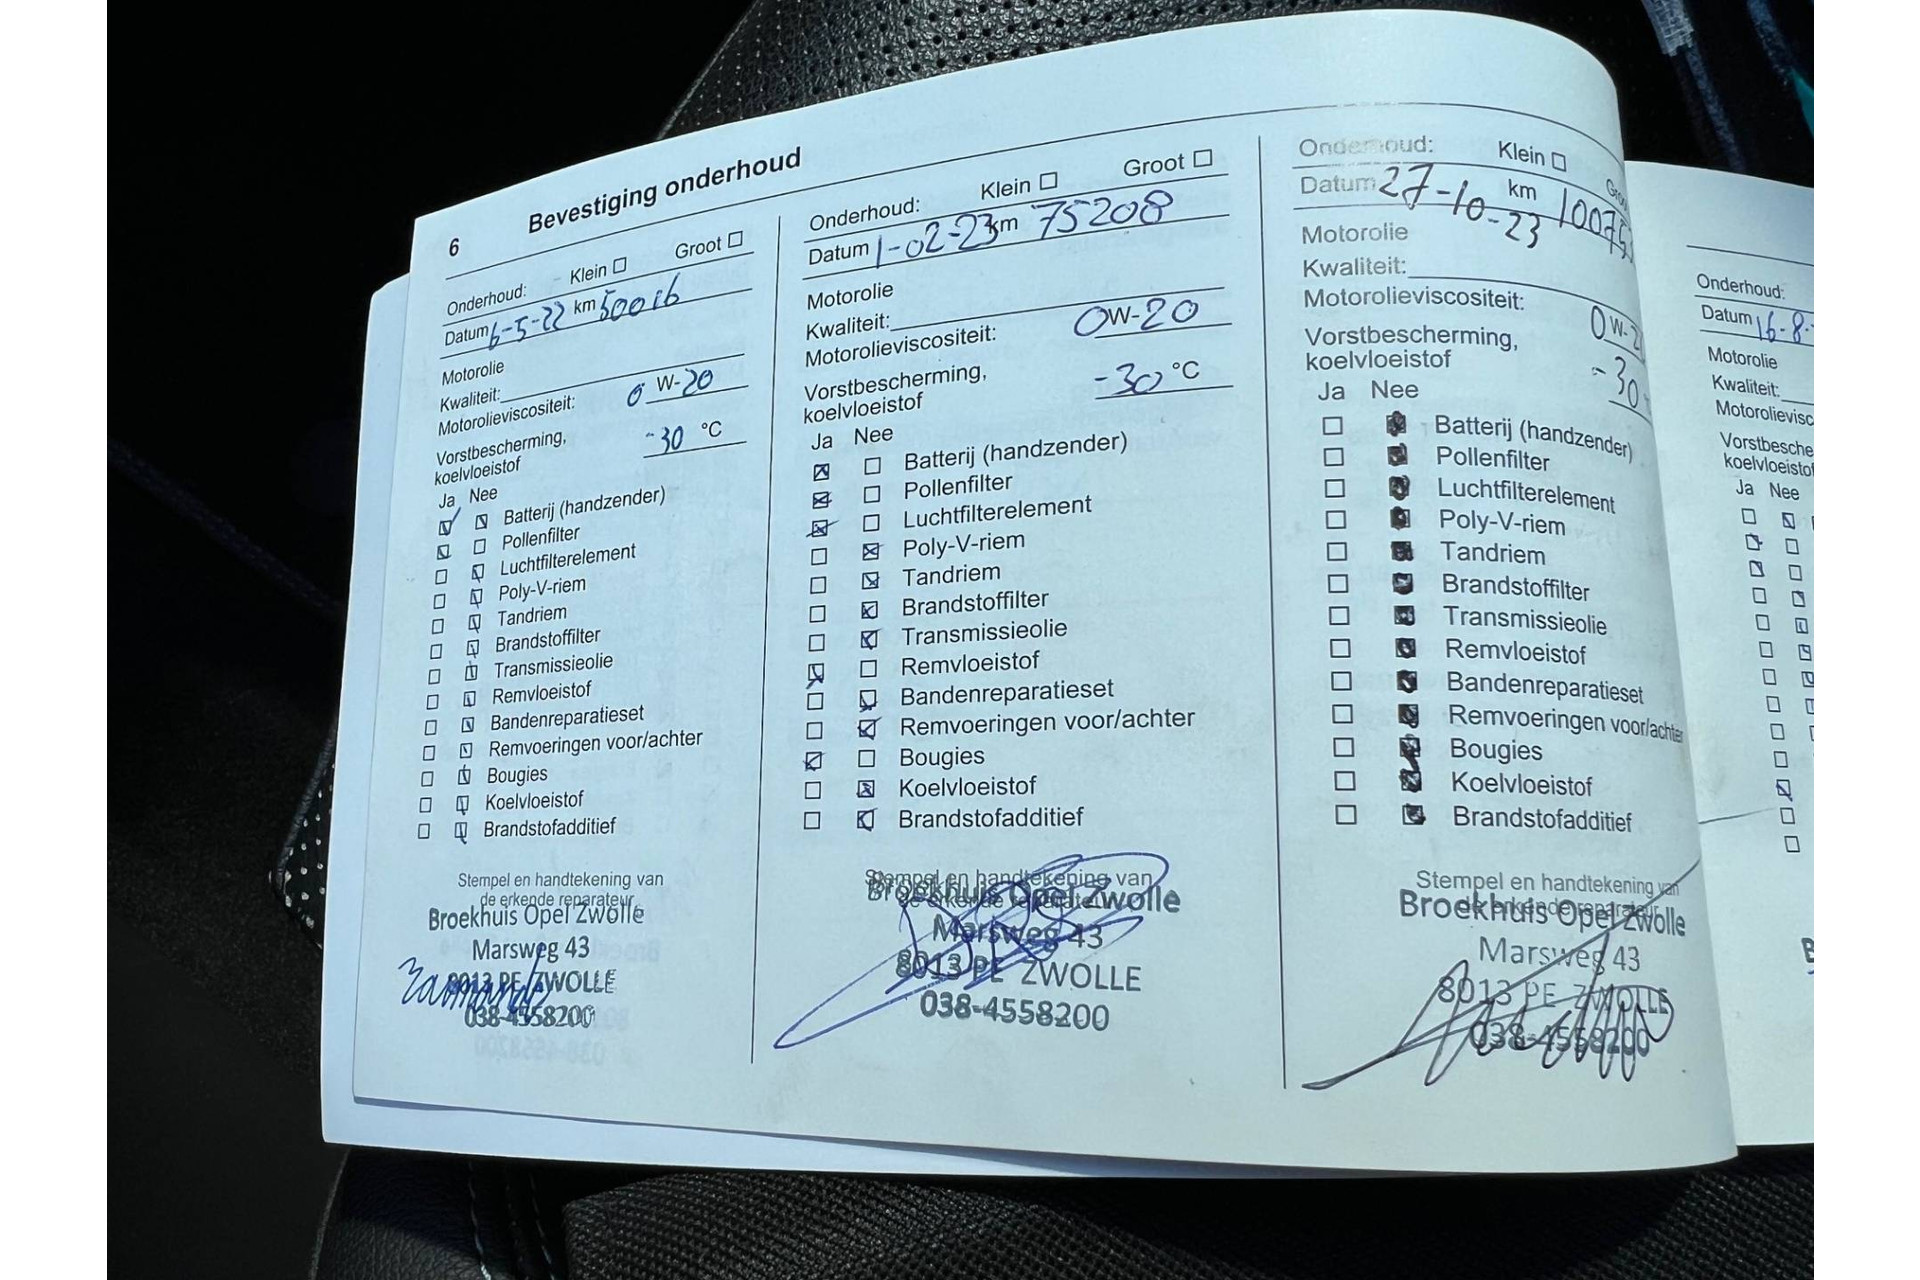 6 Bevestiging onderhoud
Onderhoud: Klein Groot
Datum 6-5-22 km 50016
Motorolie
Kwaliteit:
Motorolieviscositeit: 0 W-20
Vorstbescherming,
koelvloeistof -30 °C
Ja Nee
Batterij (handzender)
Pollenfilter
Luchtfilterelement
Poly-V-riem
Tandriem
Brandstoffilter
Transmissieolie
Remvloeistof
Bandenreparatieset
Remvoeringen voor/achter
Bougies
Koelvloeistof
Brandstofadditief
Stempel en handtekening van
de erkende reparateur
Broekhuis Opel Zwolle
Marsweg 43
8013 PE ZWOLLE
038-4558200
Onderhoud: Klein Groot
Datum 1-02-23 km 75208
Motorolie
Kwaliteit:
Motorolieviscositeit: 0W-20
Vorstbescherming,
koelvloeistof -30 °C
Ja Nee
Batterij (handzender)
Pollenfilter
Luchtfilterelement
Poly-V-riem
Tandriem
Brandstoffilter
Transmissieolie
Remvloeistof
Bandenreparatieset
Remvoeringen voor/achter
Bougies
Koelvloeistof
Brandstofadditief
Stempel en handtekening van
de erkende reparateur
Broekhuis Opel Zwolle
Marsweg 43
8013 PE ZWOLLE
038-4558200
Onderhoud: Klein
Datum 27-10-23 km
Motorolie
Kwaliteit:
Motorolieviscositeit: 0 W-2
Vorstbescherming,
koelvloeistof -30
Ja Nee
Batterij (handzender)
Pollenfilter
Luchtfilterelement
Poly-V-riem
Tandriem
Brandstoffilter
Transmissieolie
Remvloeistof
Bandenreparatieset
Remvoeringen voor/achter
Bougies
Koelvloeistof
Brandstofadditief
Stempel en handtekening van
de erkende reparateur
Broekhuis Opel Zwolle
Marsweg 43
8013 PE ZWOLLE
038-4558200
Onderhoud:
Datum 16-8-
Motorolie
Kwaliteit:
Motorolievisc
Vorstbesche
koelvloeisto
Ja Nee